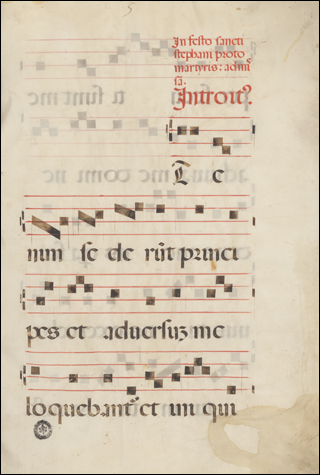 In festo sancti
stephani proto
martyris: ad miſ
sa.
Introitꝰ.
Et e
nim se de rūt princi
pes et aduersuz me
loquebantᷣ et iniqui